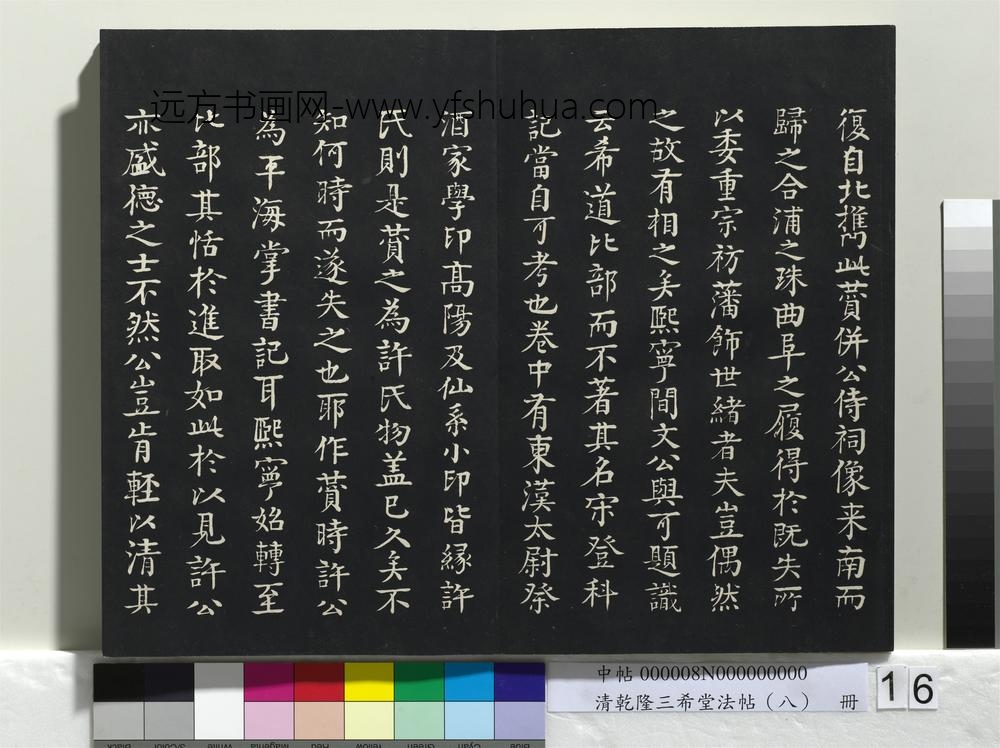 復自北攜此贊併公侍祠像来南而
歸之合浦之珠曲阜之履得於既失所
以委重宗祊藩飾世緒者夫豈偶然
之故有相之矣熙寧間文公與可題識
云希道比部而不著其名宋登科
記當自可考也卷中有東漢太尉祭
酒家學印高陽及仙系小印皆縁許
氏則是贊之為許氏物盖已久矣不
知何時而遂失之也耶作贊時許公
為平海掌書記耳熙寧始轉至
比部其恬於進取如此於以見許公
亦盛德之士不然公豈肯輕以清其
远方书画网-www.yfshuhua.com
中帖 000008N000000000
清乾隆三希堂法帖（八） 冊
16
Black
3/Color
White
Magenta
Red
Yellow
Green
Cyan
Blue